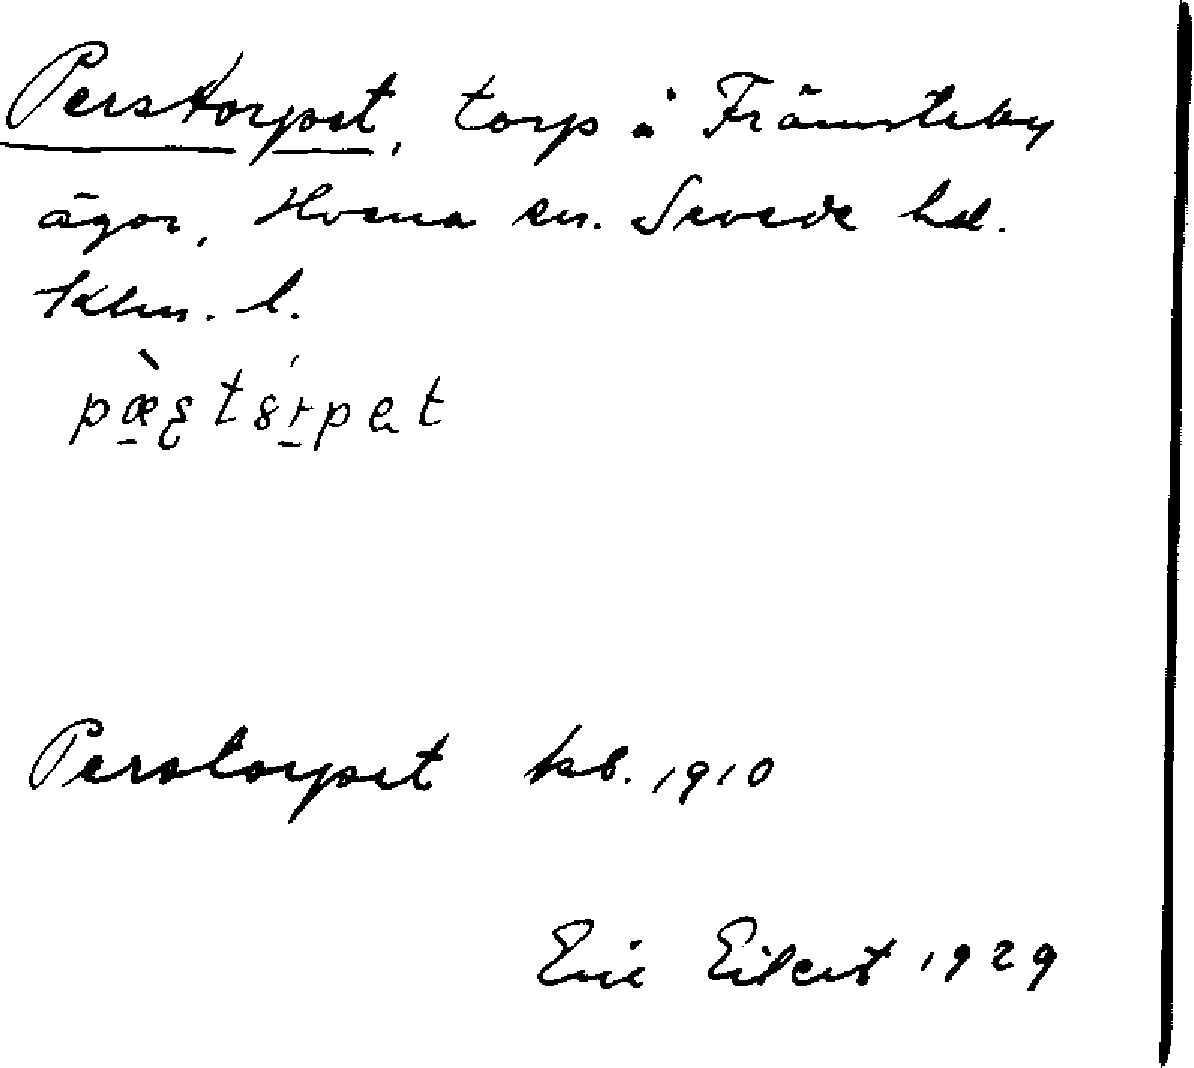 Perstorpet, torp å Främsteby
ägor, Hvena sn. Sevede hd.
Klm. l.
Perstorpet kb. 1910
Eric Eilert 1929